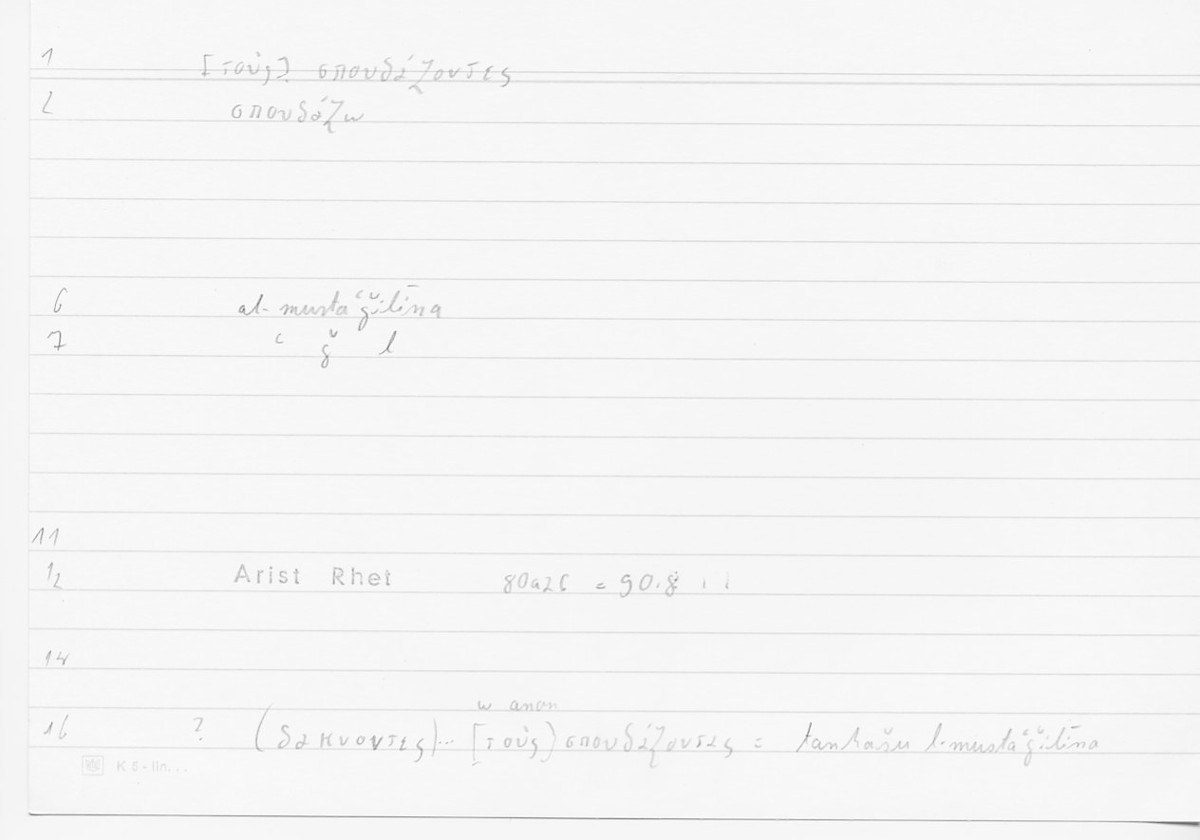 1 [τούς]? σπουδάζοντες
2 σπουδάζω
6 al-mustaʿǧilīna
7 ʿ ǧ l
11
12 Arist Rhet 80a26 = 90.8
14
w anon
16 ? (δακνοντες)... [τούς) σπουδάζοντες = tanhašu l-mustaʿǧilīna